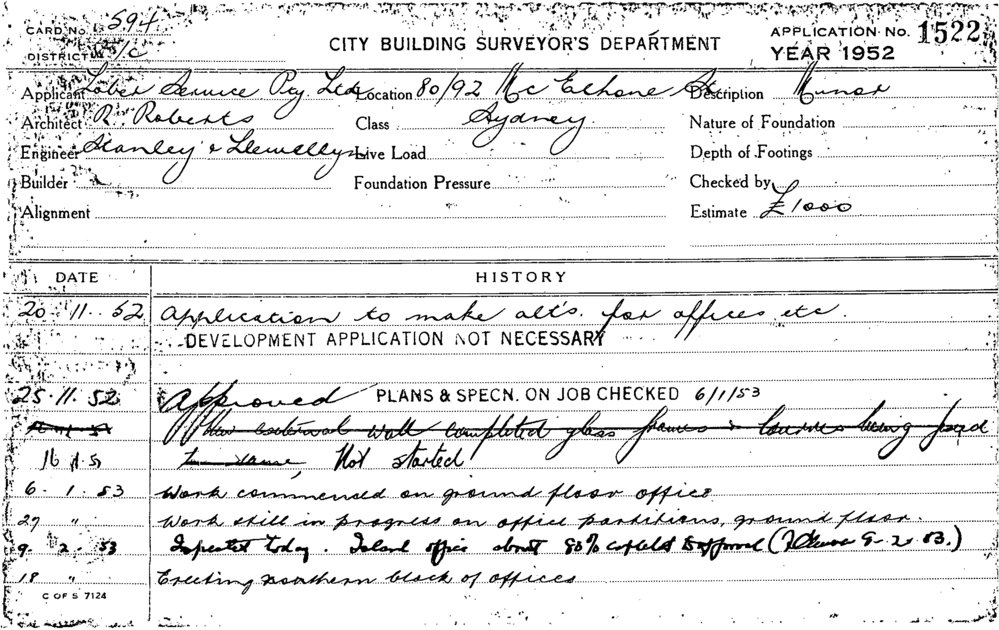 CARD No. 594
CITY BUILDING SURVEYOR'S DEPARTMENT
APPLICATION No. 1522
DISTRICT
YEAR 1952
Applicant Service Pty Ltd Location 80/92 Mc Elhone St Description Minor
Architect R. Roberts Class Sydney Nature of Foundation
Engineer Stanley & Llewellyn Live Load Depth of Footings
Builder Foundation Pressure Checked by
Alignment Estimate £1000
DATE HISTORY
20. 11. 52 Application to make alt's. for offices etc.
DEVELOPMENT APPLICATION NOT NECESSARY
25. 11. 52 Approved PLANS & SPECN. ON JOB CHECKED 6/1/53
New external wall completed glass frames & louvres being fixed
to same, Not started
6. 1. 53 Work commenced on ground floor office
27 " Work still in progress on office partitions, ground floor.
9. 2. 53 Inspected today. Island office about 80% 9. 2. 53.)
18 " Erecting northern block of offices
C OF S 7124